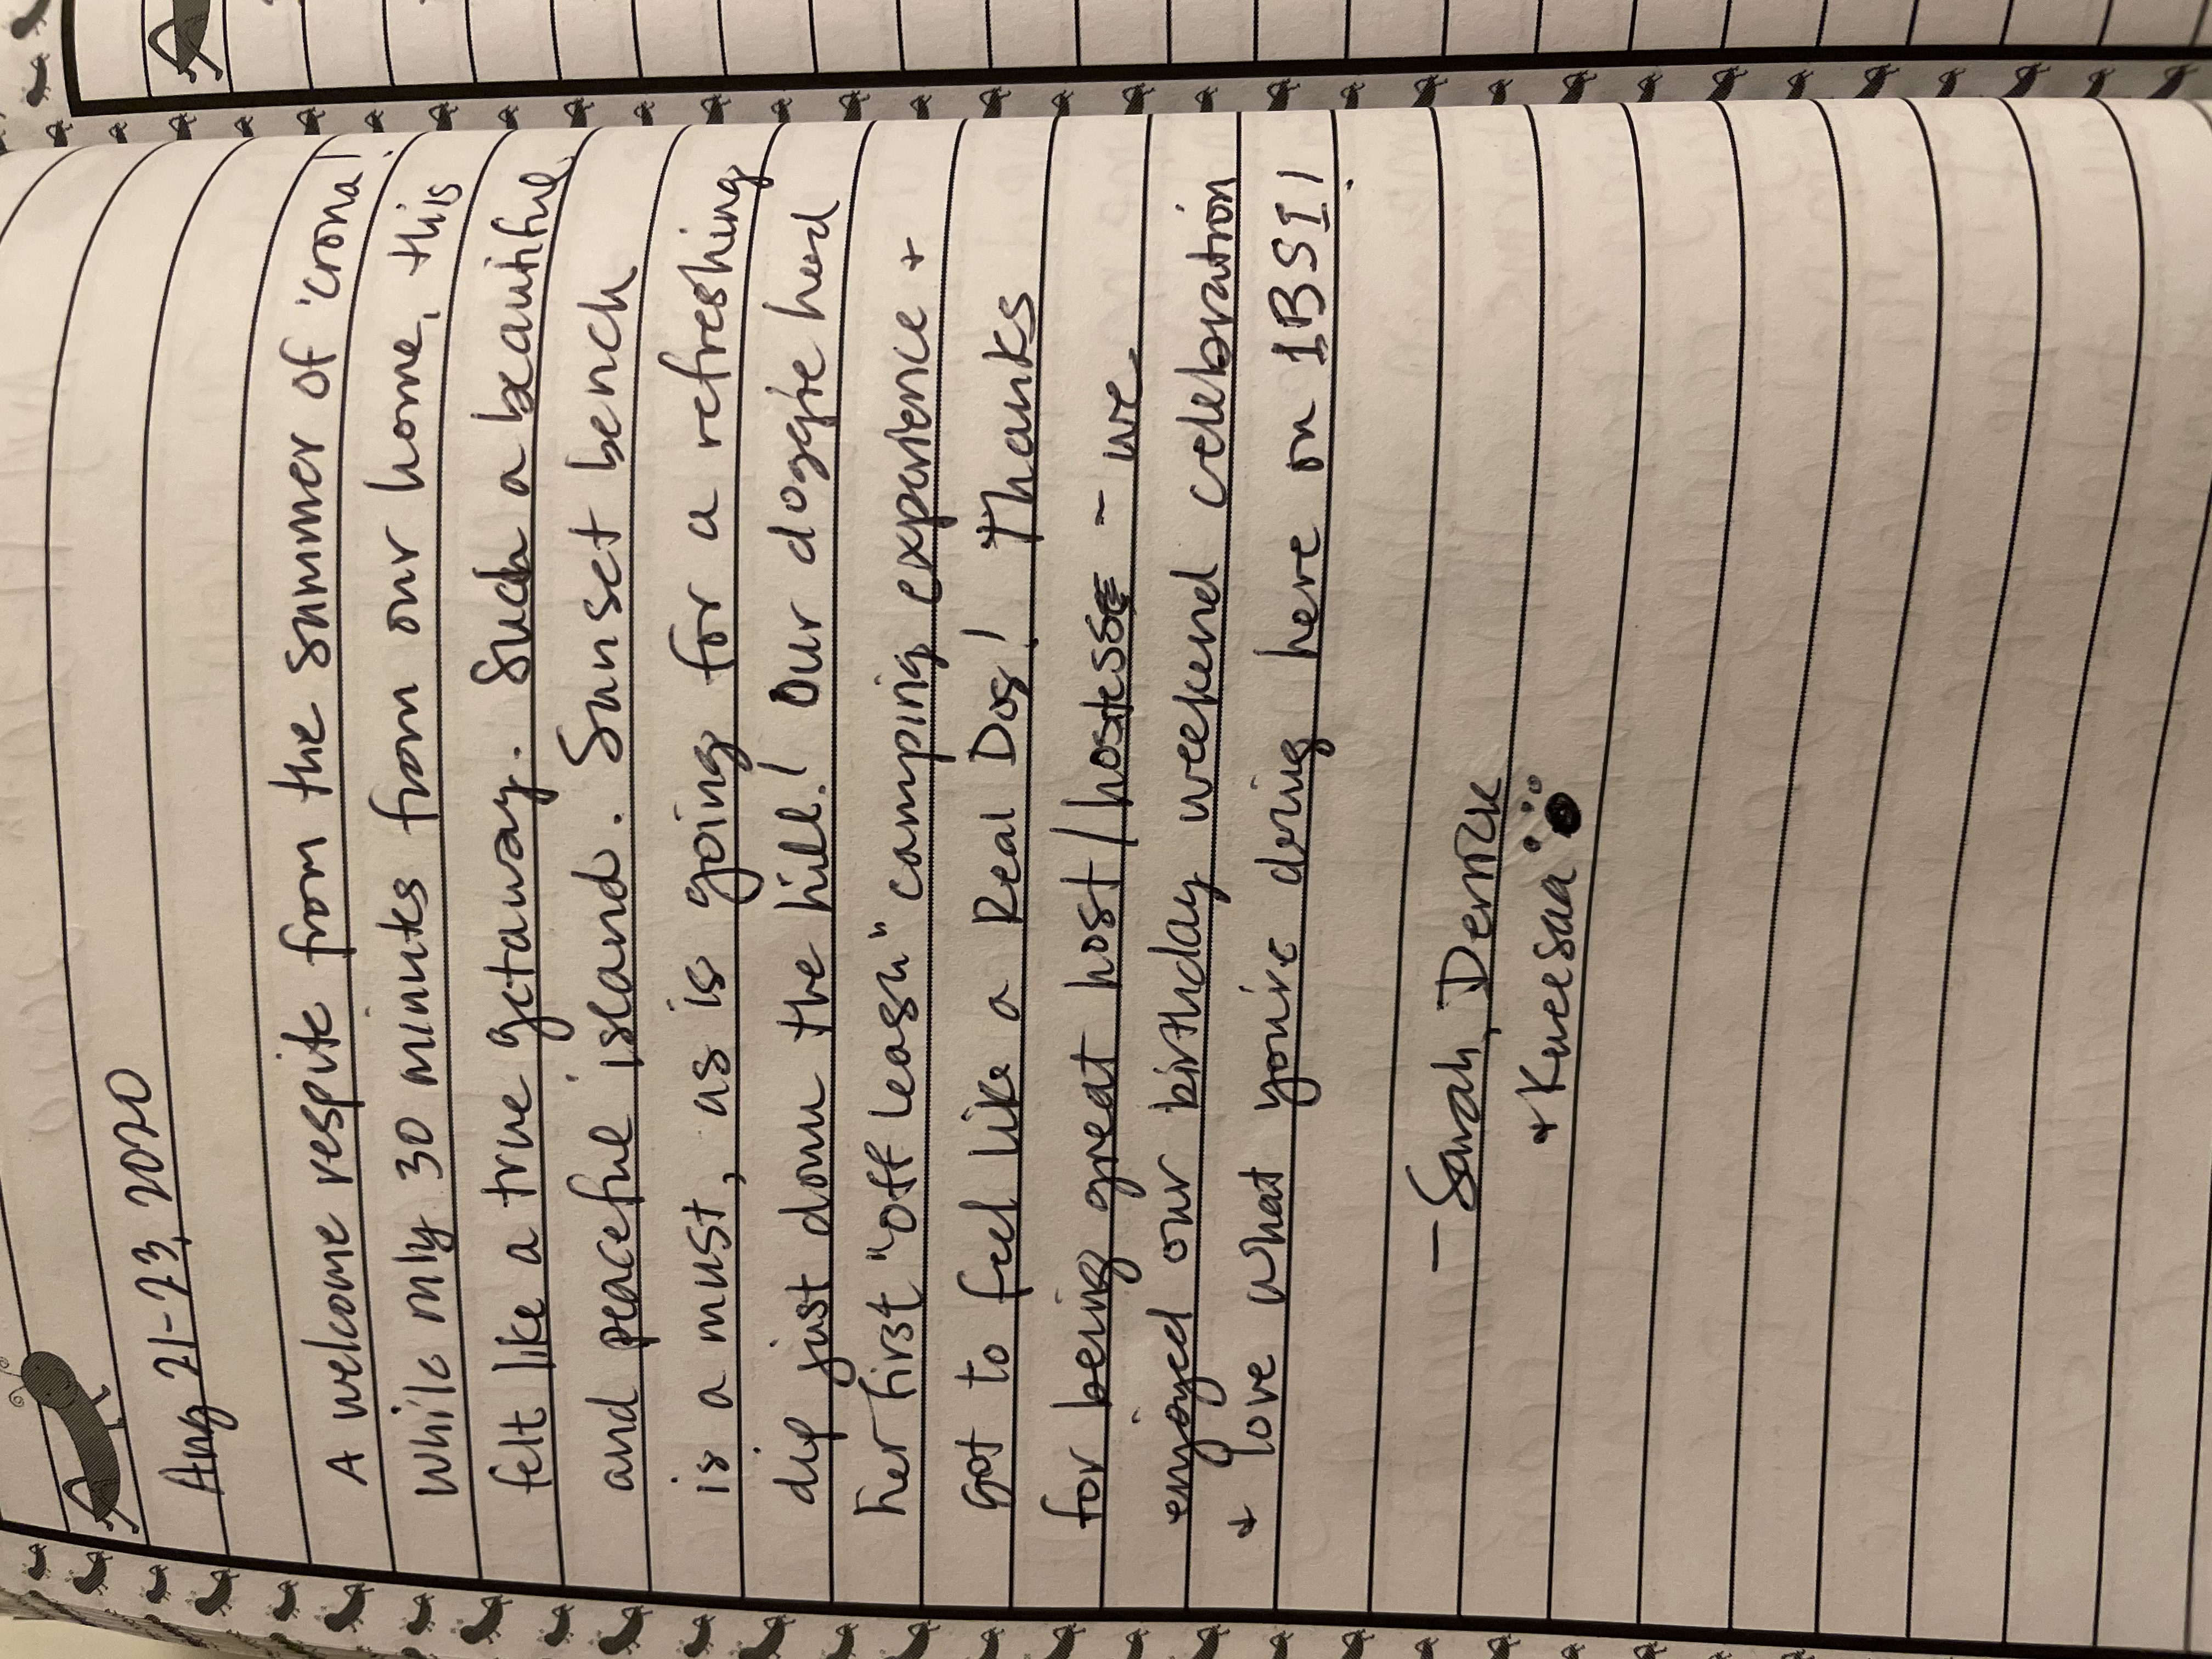 Aug 21-23, 2020
A welcome respite from the summer of 'crona!
While only 30 minutes from our home, this
felt like a true getaway. Such a beautiful
and peaceful island. Sunset bench
is a must, as is going for a refreshing
dip just down the hill! Our doggie had
her first "off leash" camping experience +
got to feel like a Real Dog! Thanks
for being great host/hostess - we
enjoyed our birthday weekend celebration
+ love what you're doing here on 1BSI!
- Sarah, Derrick
+ Kneesaa